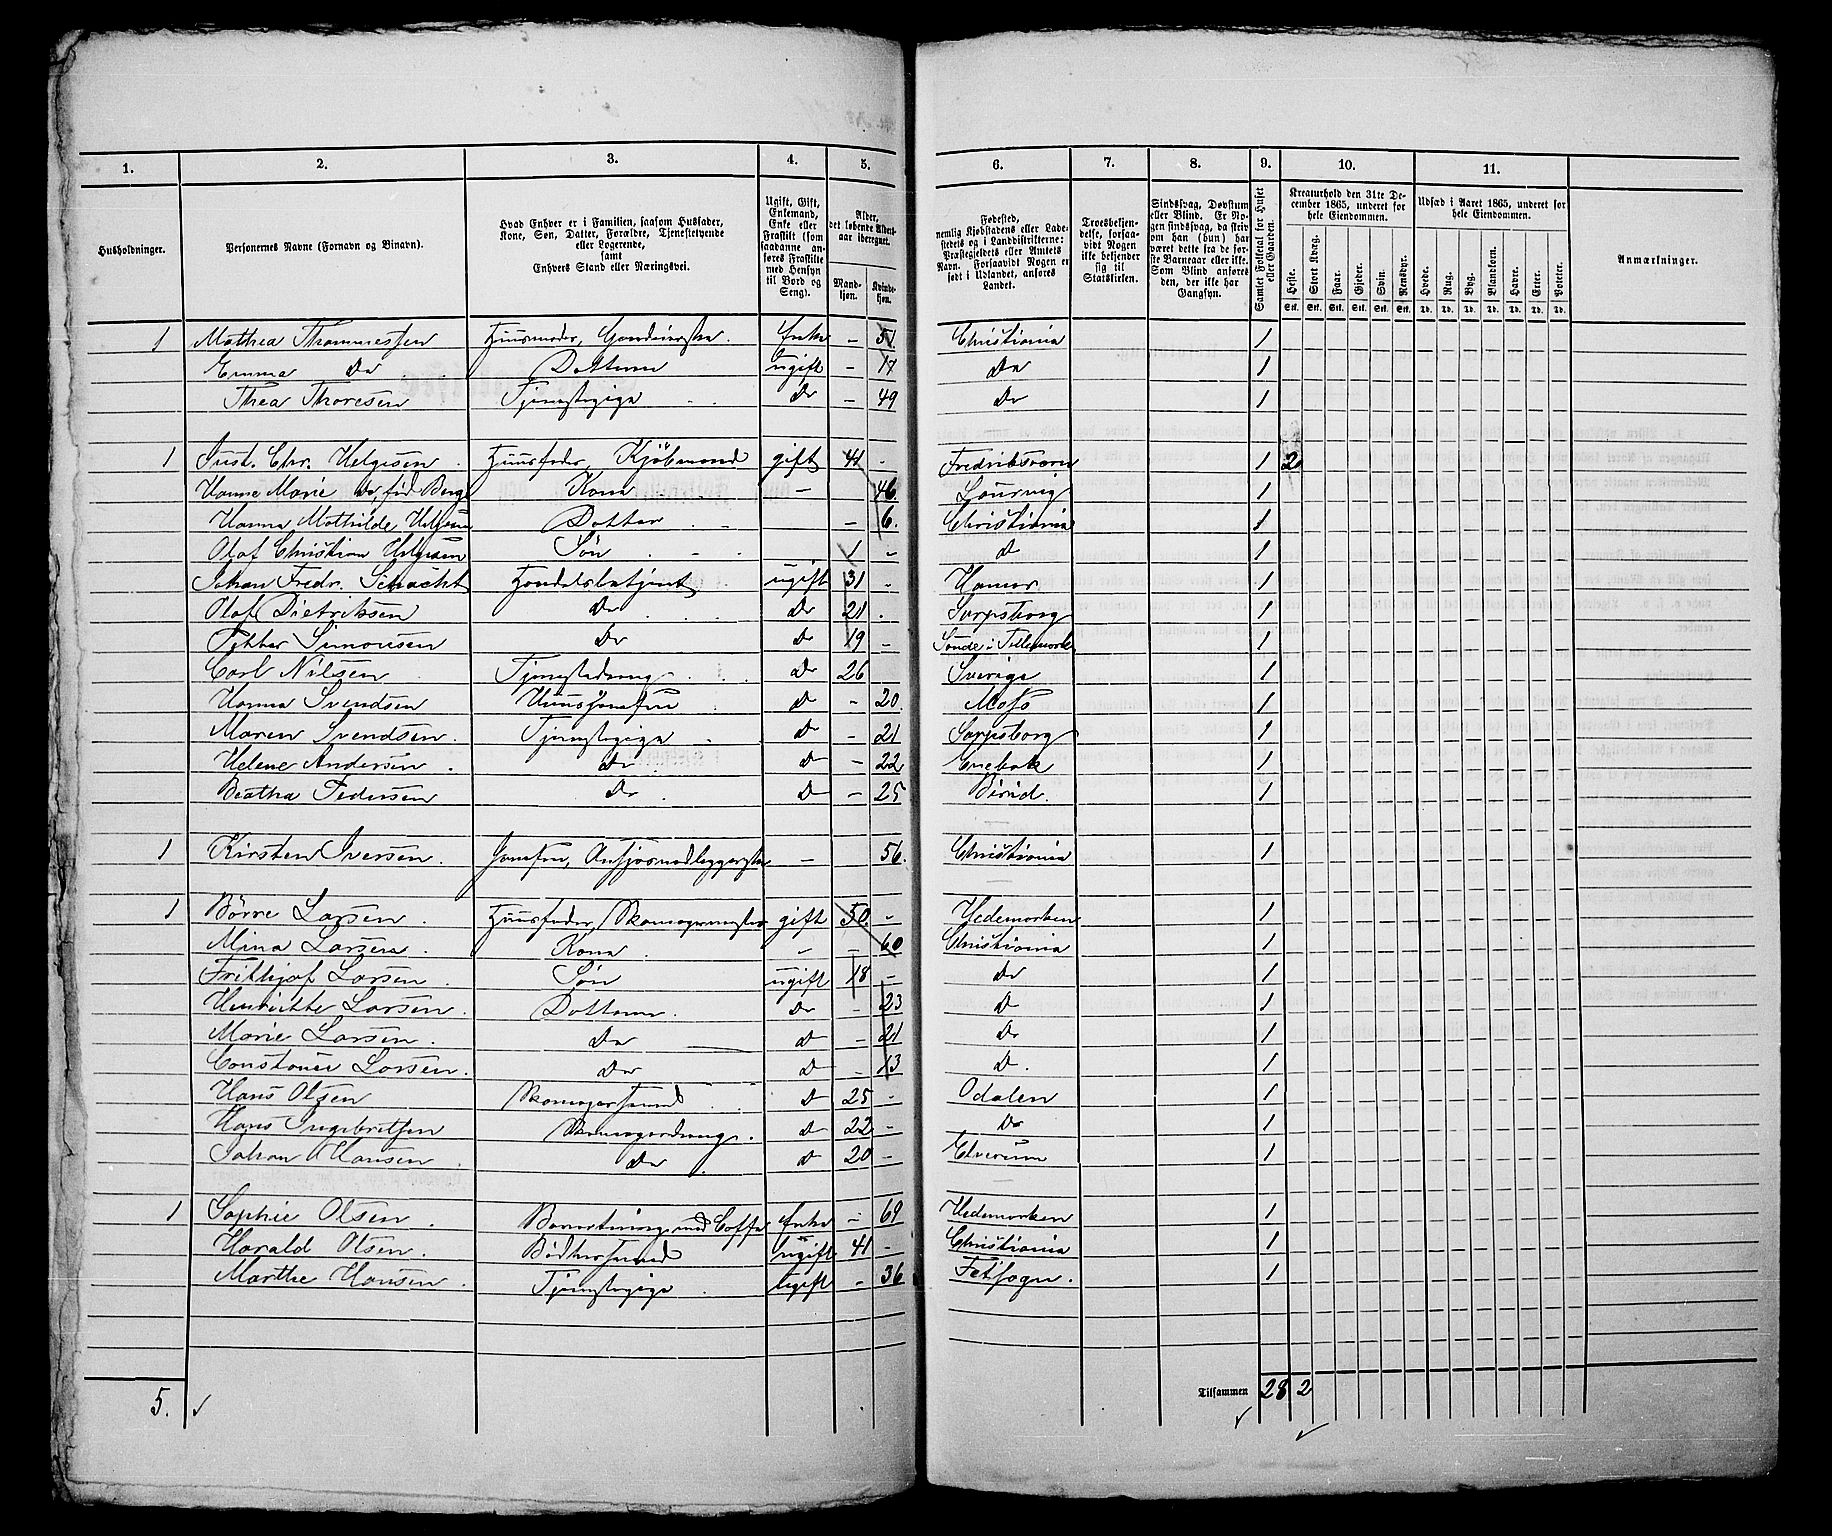 1. 2. 3. 4. 5. 6. 7. 8. 9. 10. 11.
Husholdninger.
Personernes Navne (Fornavn og Binavn).
Hvad Enhver er i Familien, saasom Husfader,
Kone, Søn, Datter, Forældre, Tjenestetyende
eller Logerende,
samt
Enhvers Stand eller Næringsvei.
Ugift, Gift,
Enkemand,
Enke eller
Fraskilt (som
saadanne an-
føres Fraskilte
med Hensyn
til Bord og
Seng).
Alder,
det løbende Alders-
aar iberegnet.
Mand-
kjøn.
Kvinde-
kjøn.
Fødested,
nemlig Kjøbstadens eller Lade-
stedets og i Landdistrikterne:
Præstegjeldets eller Amtets
Navn. Forsaavidt Nogen er
født i Udlandet, anføres
Landet.
Troesbekjen-
delse, forsaa-
vidt Nogen
ikke bekjender
sig til
Statskirken.
Sindssvag, Døvstum
eller Blind. Er No-
gen sindssvag, da skriv
om han (hun) har
været dette fra de før-
ste Barneaar eller ikke.
Som Blind anføres
den, der ikke har
Gangsyn.
Samlet Folketal for Huset
eller Gaarden.
Kreaturhold den 31te De-
cember 1865, underet for
hele Eiendommen.
Heste. Stort Kvæg. Faar. Gjeder. Svin. Rensdyr.
Stk. Stk. Stk. Stk. Stk. Stk.
Udsæd i Aaret 1865, underet for
hele Eiendommen.
Hvede. Rug. Byg. Blandkorn. Havre. Erter. Poteter.
Td. Td. Td. Td. Td. Td. Td.
Anmærkninger.
1 Mathea Thommessen Huusmoder, enke - 51 Christiania 1
Emma Do Datter ugift - 17 Do 1
Thea Thoresen Tjenestepige Do - 49 Do 1
1 Just. Chr. Helgesen Huusfader, Kjøbmand gift 41 - Fredriksværn 1 2
Hanne Marie Do fød Berg Kone - 46 Laurvig 1
Hanna Mathilde Helgesen Datter - 6 Christiania 1
Olaf Christian Helgesen Søn 1 - d 1
Johan Fredr. Schacht Handelsbetjent ugift 31 - Hamar 1
Olaf Dietriksen Do Do 21 - Sarpsborg 1
Petter Simonsen Do Do 19 - i Tellemark 1
Carl Nilsen Tjenestedreng Do 26 Sverige 1
Hanna Svendsen Huusjomfru d - 20 Moss 1
Maren Svendsen Tjenestepige d - 21 Sarpsborg 1
Helene Andersen Do d - 22 Enebak 1
Beatha Pedersen Do d - 25 Birid. 1
1 Kirsten Iversen Jomfru, - 56. Christiania 1
1 Børre Larsen Huusfader, Skomagermester gift 50 - Hedemarken 1
Mina Larsen Kone - - 60 Christiania 1
Frithjof Larsen Søn ugift 18 - Do 1
Henriette Larsen Datter Do - 23 D 1
Marie Larsen Do d - 21 Do 1
Constance Larsen. Do d - 13 D. 1
Hans Olsen Skomagersvend d 25 - Odalen 1
Hans Ingebritsen Skomagerdreng d 22 - Do 1
Johan Hansen Do d 20 - Elverum 1
1 Sophie Olsen Bevertning med Caffe enke - 69 Hedemarken 1
Harald Olsen Bødkersvend ugift 41 - Christiania 1
Marthe Hansen Tjenestepige ugift - 36 Fet sogn. 1
5. Tilsammen 28 2